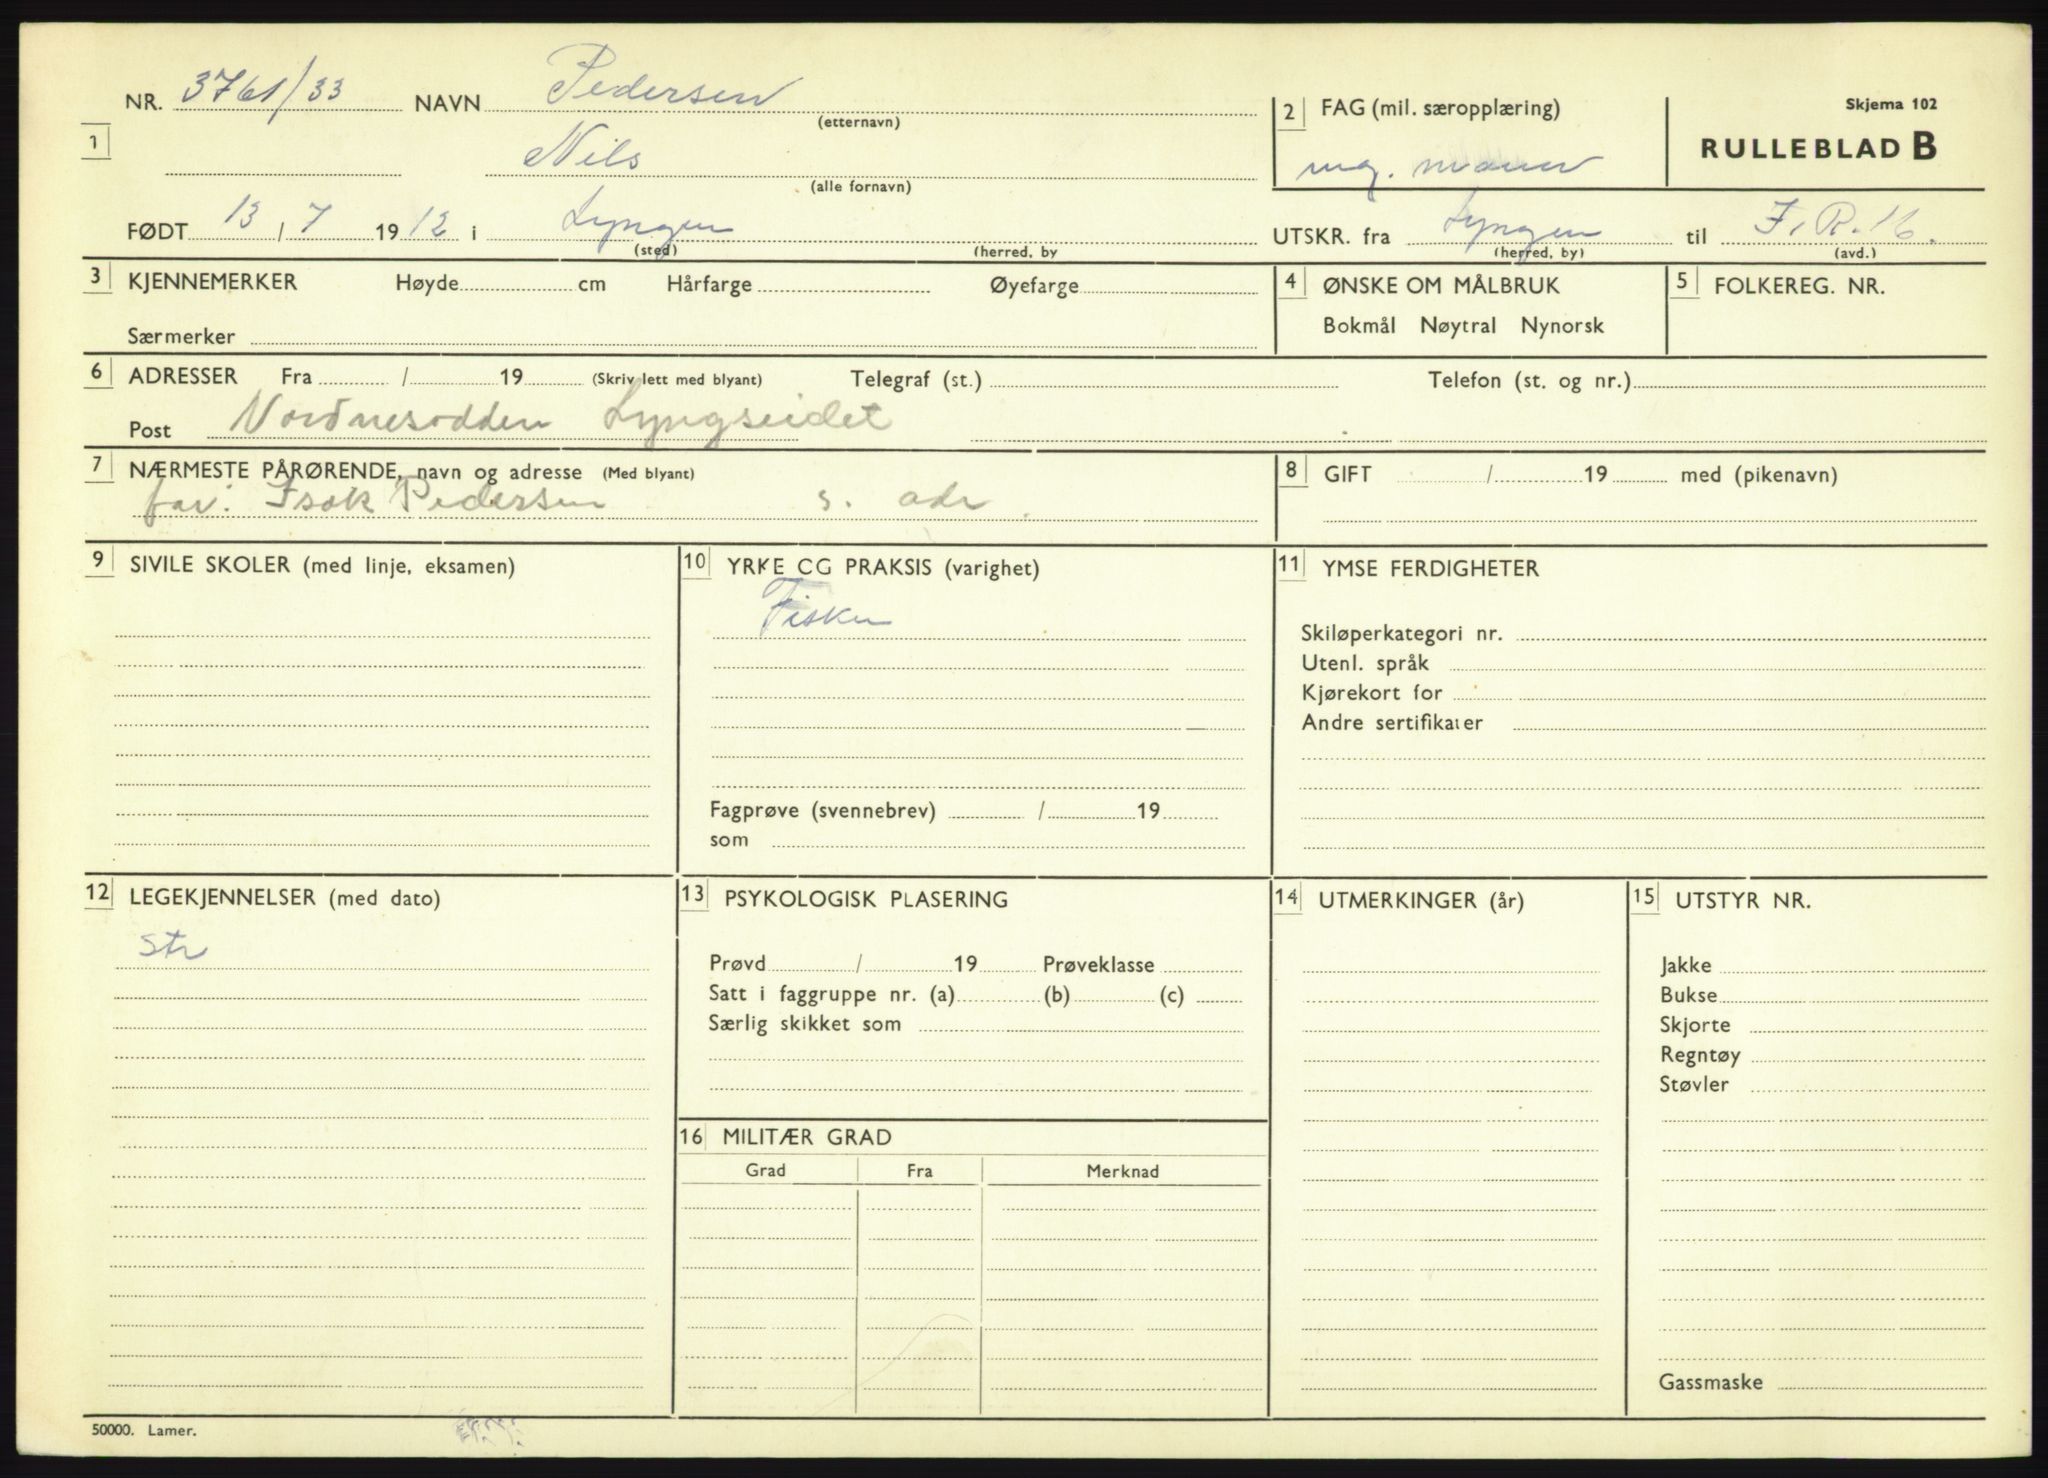 Skjema 102
RULLEBLAD B
NR. 3761/33 NAVN Pedersen
(etternavn)
1 Nils
(alle fornavn)
2 FAG (mil. særopplæring)
mg. mann
FØDT 13 / 7 1912 i Lyngen
(sted) (herred, by
UTSKR. fra Lyngen til I. R. 16.
(herred, by) (avd.)
3 KJENNEMERKER Høyde cm Hårfarge Øyefarge
Særmerker
4 ØNSKE OM MÅLBRUK
Bokmål Nøytral Nynorsk
5 FOLKEREG. NR.
6 ADRESSER Fra / 19 (Skriv lett med blyant) Telegraf (st.) Telefon (st. og nr.)
Post Nordnesodden Lyngseidet
7 NÆRMESTE PÅRØRENDE, navn og adresse (Med blyant)
far: Isak Pedersen s. adr.
8 GIFT / 19 med (pikenavn)
9 SIVILE SKOLER (med linje, eksamen)
10 YRKE CG PRAKSIS (varighet)
Fisker
Fagprøve (svennebrev) / 19
som
11 YMSE FERDIGHETER
Skiløperkategori nr.
Utenl. språk
Kjørekort for
Andre sertifikater
12 LEGEKJENNELSER (med dato)
str
13 PSYKOLOGISK PLASERING
Prøvd / 19 Prøveklasse
Satt i faggruppe nr. (a) (b) (c)
Særlig skikket som
14 UTMERKINGER (år)
15 UTSTYR NR.
Jakke
Bukse
Skjorte
Regntøy
Støvler
Gassmaske
16 MILITÆR GRAD
Grad Fra Merknad
50000. Lamer.